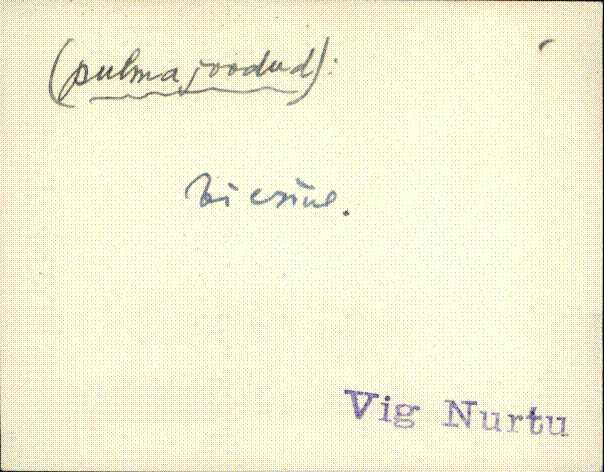 (pulmajoodud):
ei esine.
Vig Nurtu